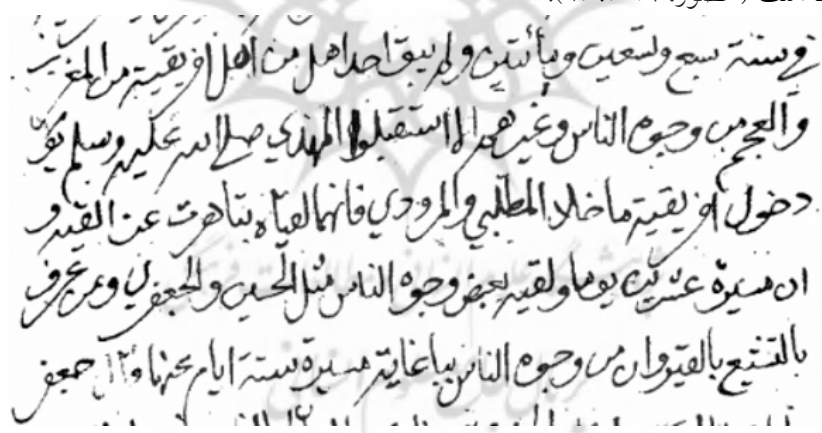 في سنة سبع وتسعين ومأتين ولم يبق احد اهل من اهل افريقية من العرب
والعجم من وجوه الناس وغيرهم الا استقبلوا المهدي صلى الله عليه وسلم
دخول افريقية ما خلا المطلبي والمروذي فانهما لقياه بتاهرت عن القيرو
ان مسيرة عشرين يوما ولقيه بعض وجوه الناس مثل الحسين والجعفري ومن عرف
بالتشيع بالقيروان من وجوه الناس بباغاية مسيرة ستة ايام جعفر